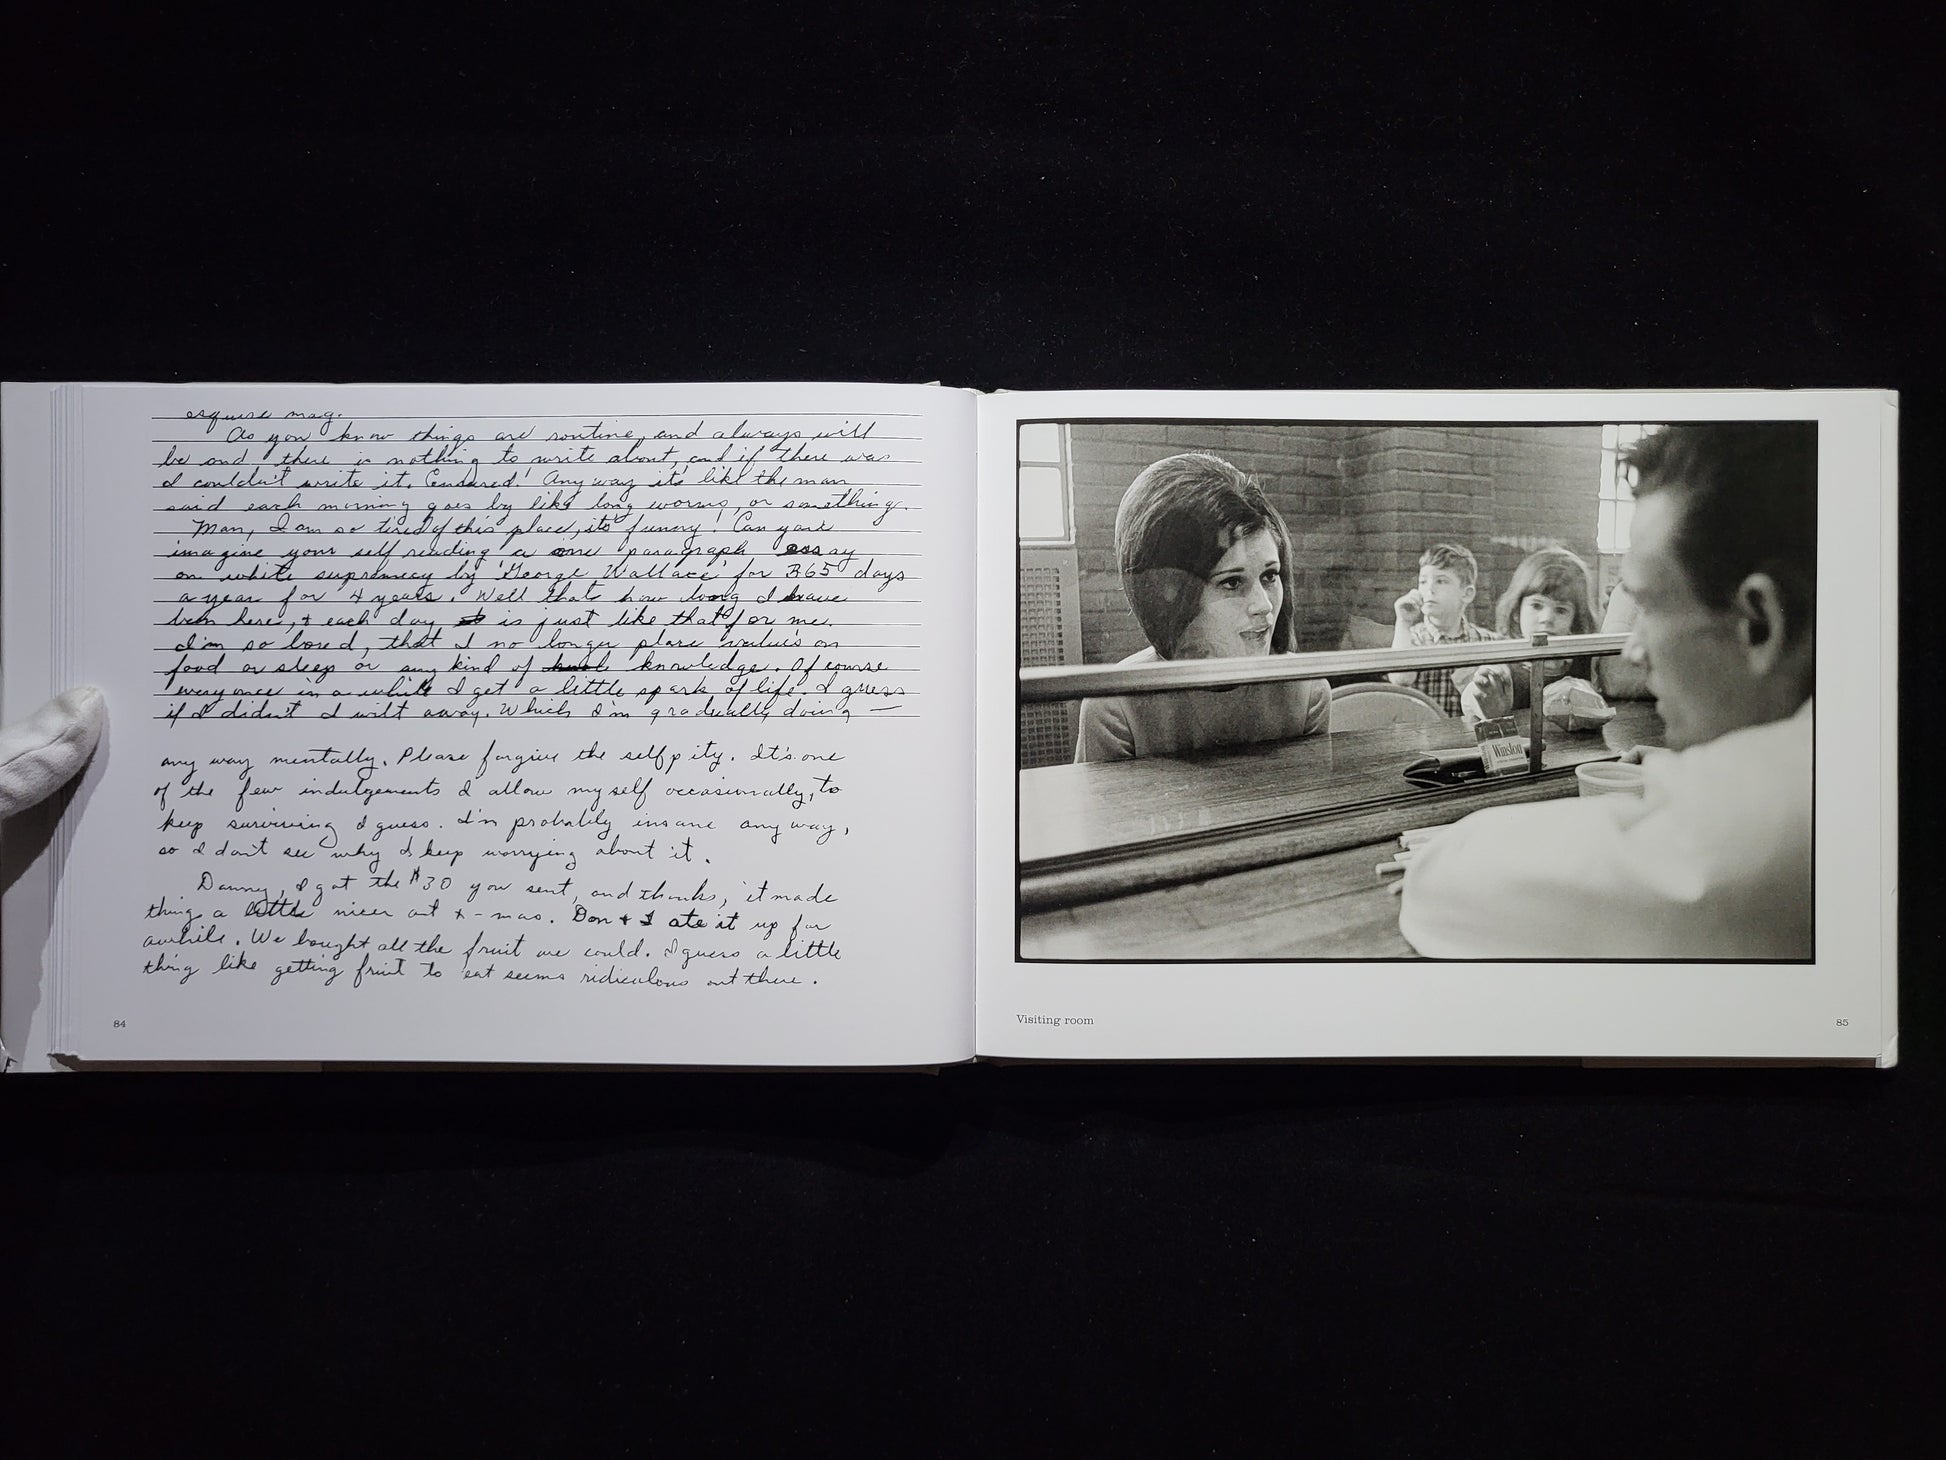 esquire mag.
As you know things are routine, and always will
be and there is nothing to write about, and if there was
I couldn't write it. Censored! Any way it's like the man
said each morning goes by like long worms, or something.
Man, I am so tired of this place, its funny! Can you
imagine your self reading a one paragraph essay
on white supremacy by 'George Wallace' for 365 days
a year for 4 years. Well thats how long I have
been here, + each day is just like that for me.
I'm so bored, that I no longer place value's on
food or sleep or any kind of knowledge. Of course
every once in a while I get a little spark of life. I guess
if I didn't I wilt away. Which I'm gradually doing —
any way mentally. Please forgive the self pity. It's one
of the few indulgements I allow my self occasionally, to
keep surviving I guess. I'm probably insane any way,
so I don't see why I keep worrying about it.
Danny, I got the $30 you sent, and thanks, it made
thing a little nicer out x-mas. Don + I ate it up for
awhile. We bought all the fruit we could. I guess a little
thing like getting fruit to eat seems ridiculous out there.
84
Winston
Visiting room
85